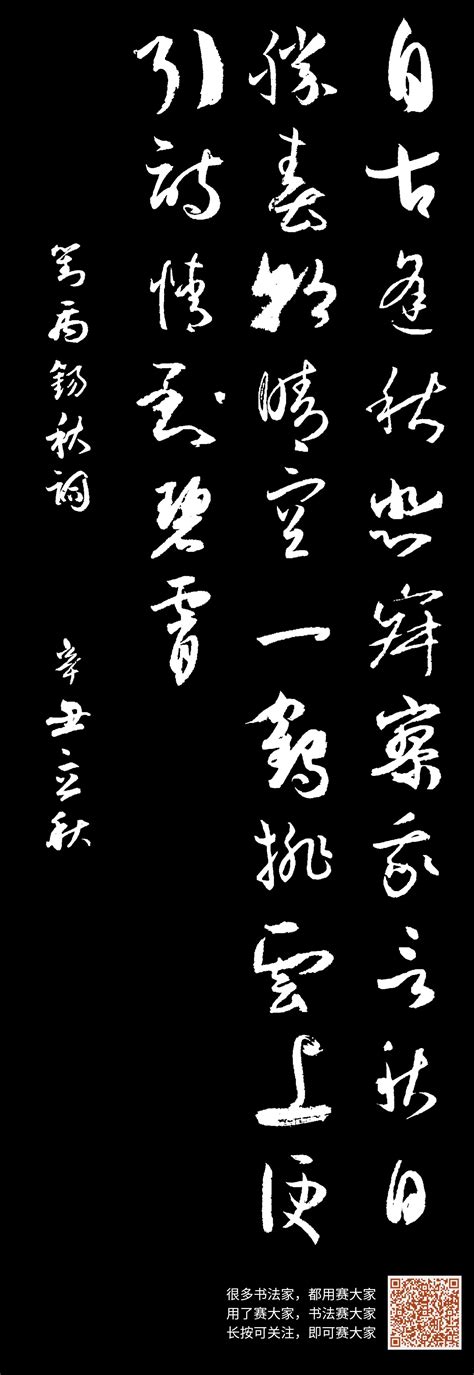 自古逢秋悲寂寥我言秋日
勝春朝晴空一鶴排雲上便
引詩情到碧霄
劉禹錫秋詞 辛丑立秋
很多书法家，都用赛大家
用了赛大家，书法赛大家
长按可关注，即可赛大家